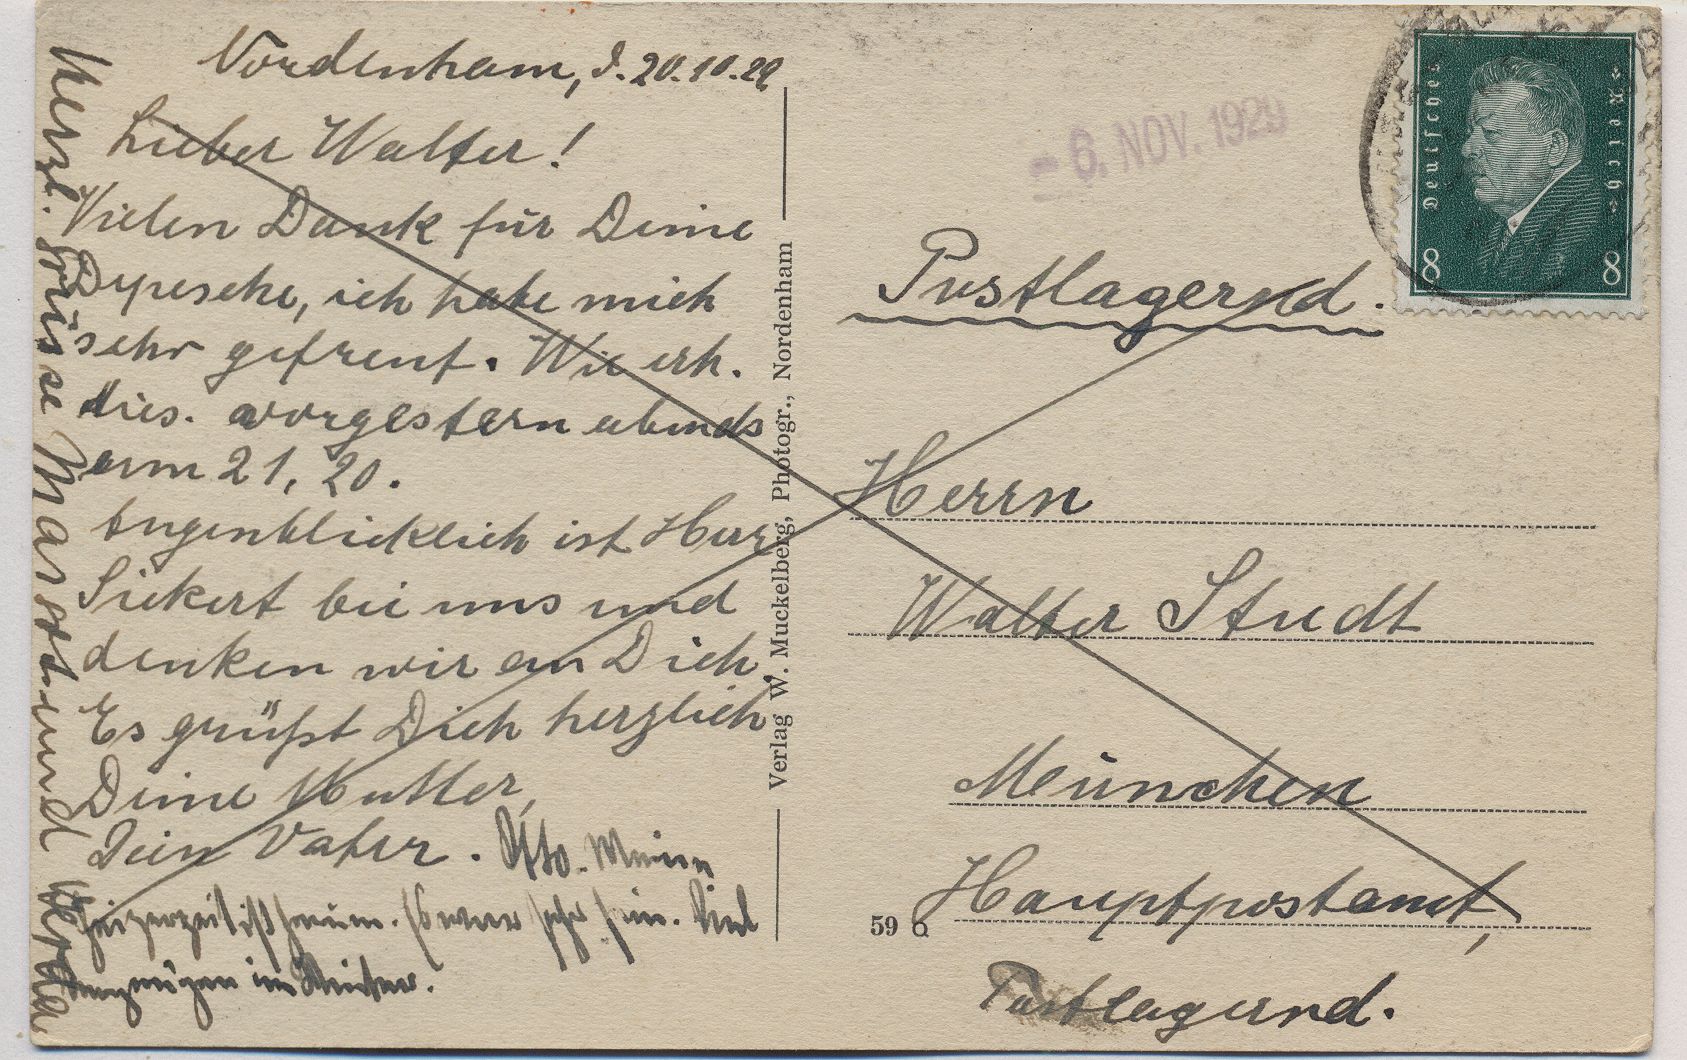 Nordenham, d. 20.10.29
Lieber Walter!
Vielen Dank für Deine
Depesche, ich habe mich
sehr gefreut. Wir erh.
dies. vorgestern abends
um 21,20.
Augenblicklich ist Herr
Siekert bei uns und
denken wir an Dich.
Es grüßt Dich herzlich
Deine Mutter,
Dein Vater. Otto. Meine
Heizerzeit ist herum. Es war sehr fein. Viel
Vergnügen im Winter.
Herzl. Grüsse Marost und
Verlag W. Muckelberg, Photogr., Nordenham
- 6. NOV. 1929
Deutsches Reich
8 8
Postlagernd.
Herrn
Walter Studt
München
Hauptpostamt,
59 6
Postlagernd.